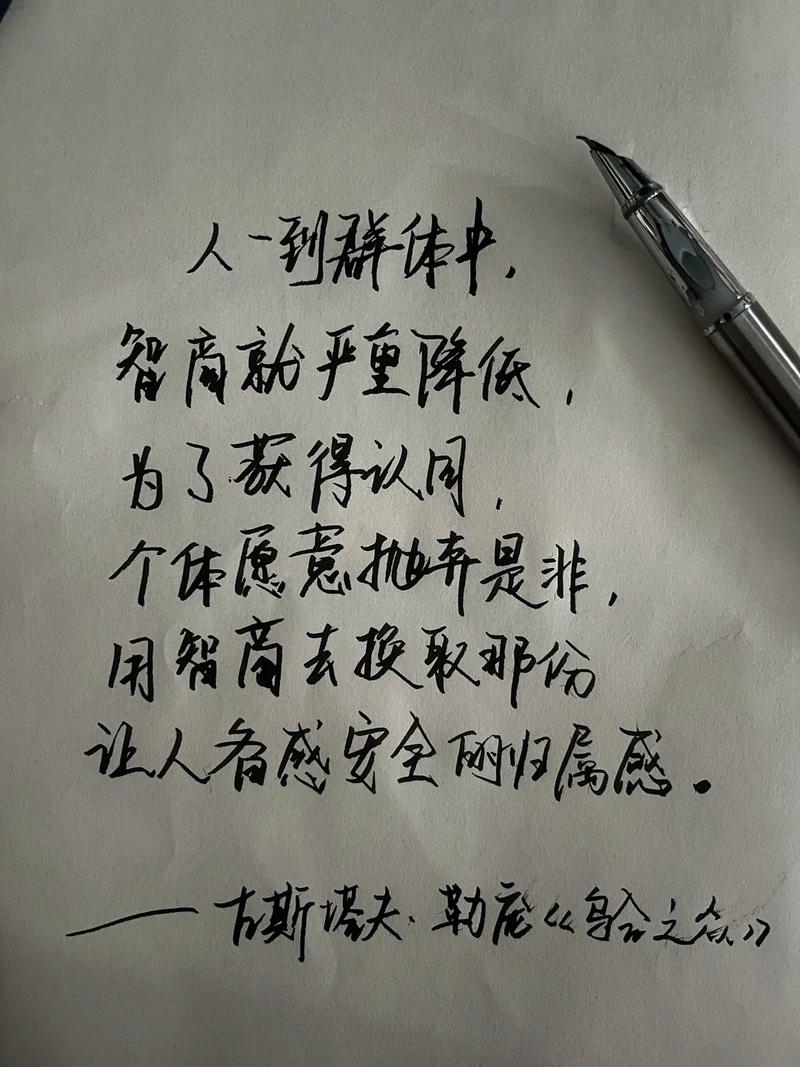 人一到群体中，
智商就严重降低，
为了获得认同，
个体愿意抛弃是非，
用智商去换取那份
让人备感安全的归属感。
——古斯塔夫·勒庞《乌合之众》